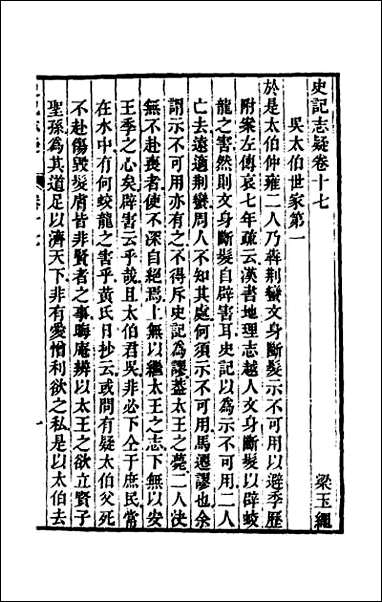 史記志疑卷十七
梁玉繩
吳太伯世家第一
於是太伯仲雍二人乃犇荆蠻文身斷髮示不可用以避季歷
附案左傳哀七年疏云漢書地理志越人文身斷髮以辟蛟
龍之害然則文身斷髮自辟害耳史記以為示不可用二人
亡去遠適荆蠻周人不知其處何須示不可用馬遷謬也余
謂示不可用亦有之不得斥史記為謬葢太王之薨二人決
無不赴喪者使不深自絕焉上無以繼太王之志下無以安
王季之心矣辟害云乎哉且太伯君吳非必下仝于庶民常
在水中有何蛟龍之害乎黃氏日抄云或問有疑太伯父死
不赴傷毀髮膚皆非賢者之事晦庵辨以太王之欲立賢子
聖孫為其道足以濟天下非有愛憎利欲之私是以太伯去